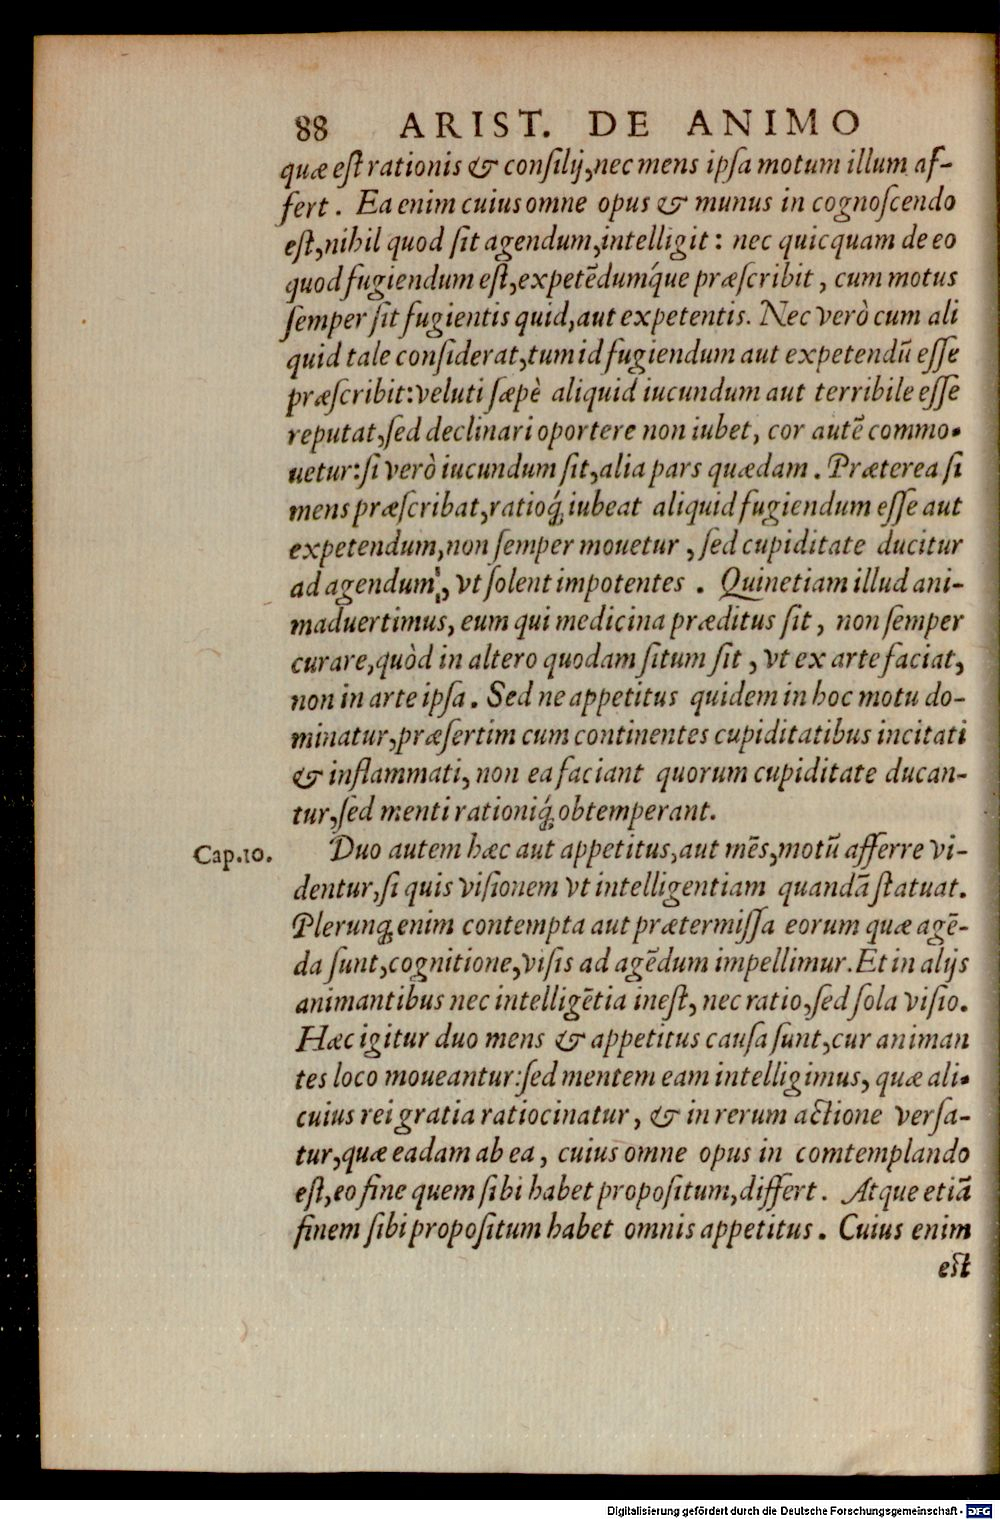 88 ARIST. DE ANIMO
quæ eſt rationis & conſilij, nec mens ipſa motum illum af-
fert. Ea enim cuius omne opus & munus in cognoſcendo
eſt, nihil quod ſit agendum, intelligit: nec quicquam de eo
quod fugiendum eſt, expetēdumq́ue præſcribit, cum motus
ſemper ſit fugientis quid, aut expetentis. Nec verò cum ali
quid tale conſiderat, tum id fugiendum aut expetendū eſſe
præſcribit: veluti ſæpè aliquid iucundum aut terribile eſſe
reputat, ſed declinari oportere non iubet, cor autē commo-
uetur: ſi verò iucundum ſit, alia pars quædam. Præterea ſi
mens præſcribat, ratioq́; iubeat aliquid fugiendum eſſe aut
expetendum, non ſemper mouetur, ſed cupiditate ducitur
ad agendum, vt ſolent impotentes. Quinetiam illud ani-
maduertimus, eum qui medicina præditus ſit, non ſemper
curare, quòd in altero quodam ſitum ſit, vt ex arte faciat,
non in arte ipſa. Sed ne appetitus quidem in hoc motu do-
minatur, præſertim cum continentes cupiditatibus incitati
& inflammati, non ea faciant quorum cupiditate ducan-
tur, ſed menti rationiq́; obtemperant.
Cap.10. Duo autem hæc aut appetitus, aut mēs, motū afferre vi-
dentur, ſi quis viſionem vt intelligentiam quandā ſtatuat.
Plerunq; enim contempta aut prætermiſſa eorum quæ agē-
da ſunt, cognitione, viſis ad agēdum impellimur. Et in alijs
animantibus nec intelligētia ineſt, nec ratio, ſed ſola viſio.
Hæc igitur duo mens & appetitus cauſa ſunt, cur animan
tes loco moueantur: ſed mentem eam intelligimus, quæ ali-
cuius rei gratia ratiocinatur, & in rerum actione verſa-
tur, quæ eadam ab ea, cuius omne opus in comtemplando
eſt, eo fine quem ſibi habet propoſitum, differt. Atque etiā
finem ſibi propoſitum habet omnis appetitus. Cuius enim
eſt
Digitalisierung gefördert durch die Deutsche Forschungsgemeinschaft - DFG